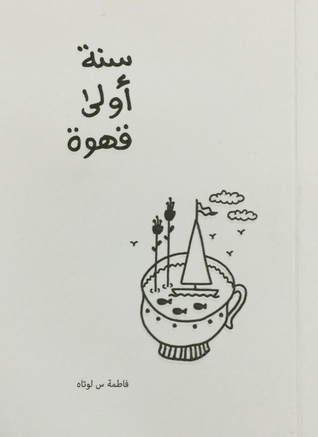 سنة
أولى
قهوة
فاطمة س لوتاه